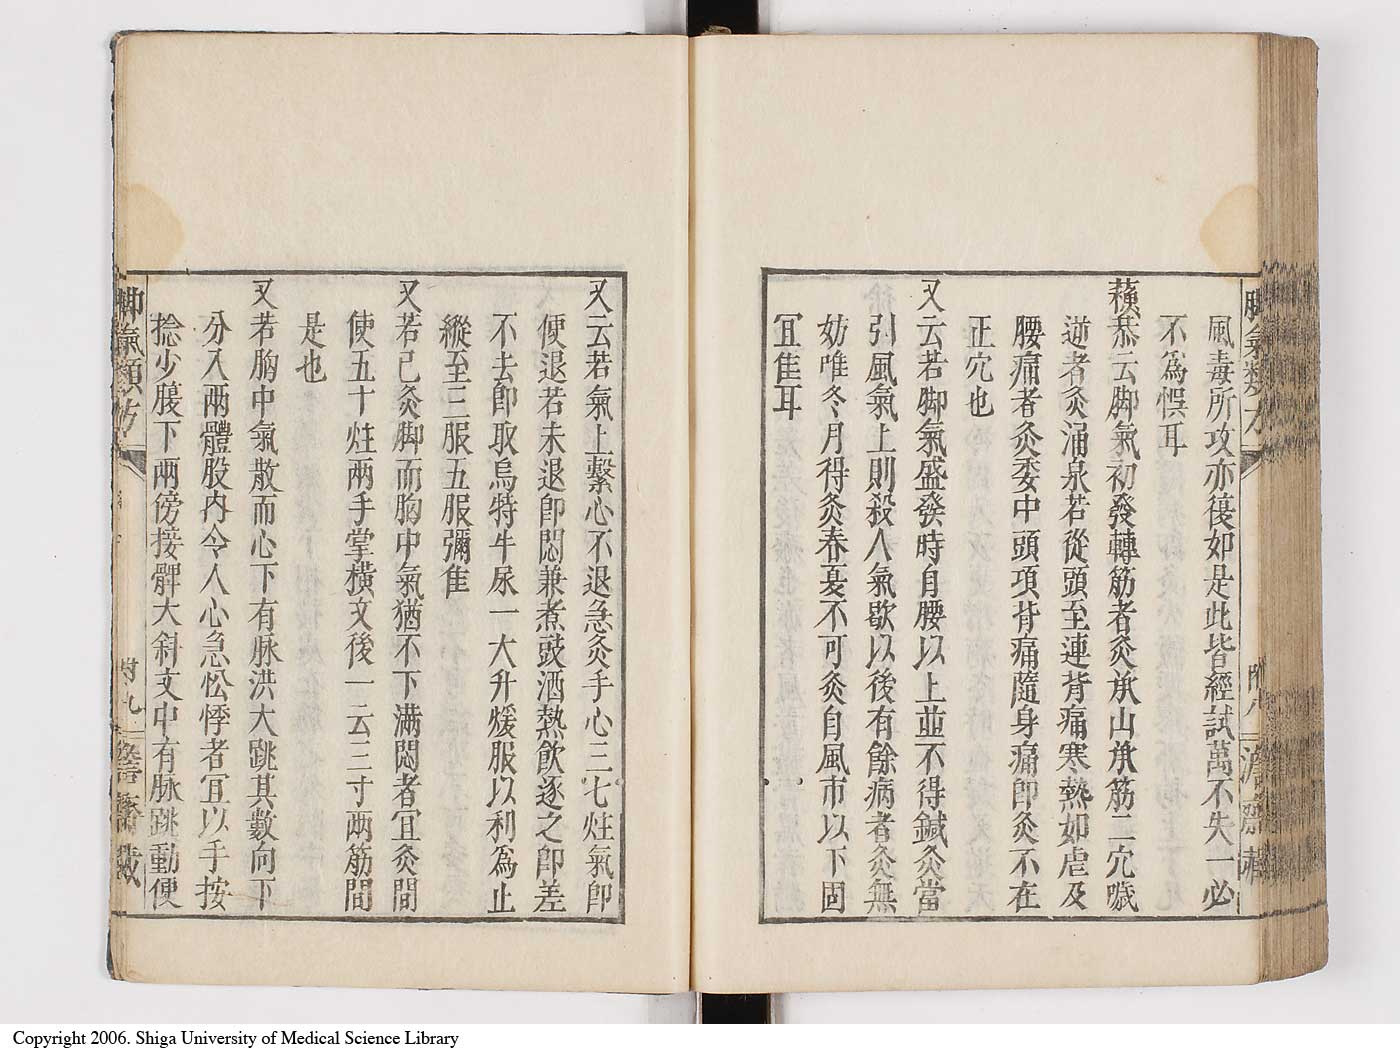 風毒所攻亦復如是此皆經試萬不失一必
不為悞耳
蘇恭云脚氣初發轉筋者灸承山承筋二穴噦
逆者灸涌泉若從頭至連背痛寒熱如虐及
腰痛者灸委中頭項背痛隨身痛即灸不在
正穴也
又云若脚氣盛發時自腰以上並不得鍼灸當
引風氣上則殺人氣歇以後有餘病者灸無
妨唯冬月得灸春夏不可灸自風市以下固
宜隹耳
脚氣類方
附八
濟齋藏
又云若氣上繫心不退急灸手心三七炷氣即
便退若未退即悶兼煮豉酒熱飲逐之即差
不去即取烏特牛尿一大升煖服以利為止
縱至三服五服彌隹
又若已灸脚而胸中氣猶不下滿悶者宜灸間
使五十炷兩手掌橫文後一云三寸兩筋間
是也
又若胸中氣散而心下有脉洪大跳其數向下
分入兩體股内令人心急忪悸者宜以手按
捻少腹下兩傍接髀大斜文中有脉跳動便
脚氣類方
附九
Copyright 2006. Shiga University of Medical Science Library